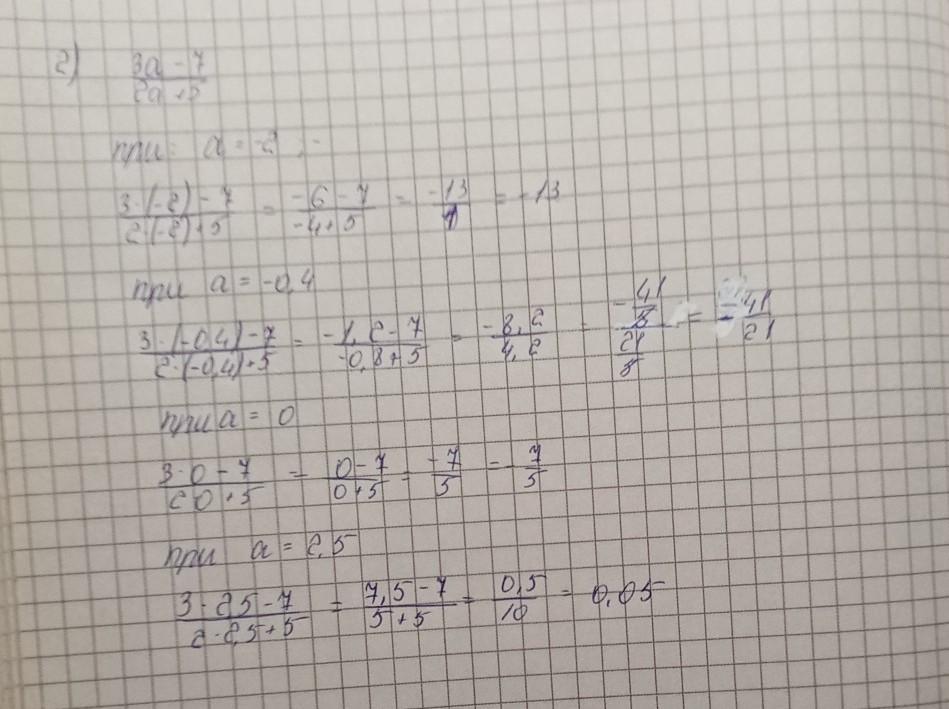 г) \frac{3a - 7}{2a + 5}
при: a = -2 ; -
\frac{3·(-2) - 7}{2·(-2) + 5} = \frac{-6 - 7}{-4 + 5} = \frac{-13}{1} = -13
при a = -0,4
\frac{3·(-0,4) - 7}{2·(-0,4) + 5} = \frac{-1,2 - 7}{-0,8 + 5} = \frac{-8,2}{4,2} = \frac{-\frac{41}{5}}{\frac{21}{5}} = -\frac{41}{21}
при a = 0
\frac{3·0 - 7}{2 0 + 5} = \frac{0 - 7}{0 + 5} = \frac{-7}{5} = -\frac{7}{5}
при a = 2,5
\frac{3·2,5 - 7}{2·2,5 + 5} = \frac{7,5 - 7}{5 + 5} = \frac{0,5}{10} = 0,05